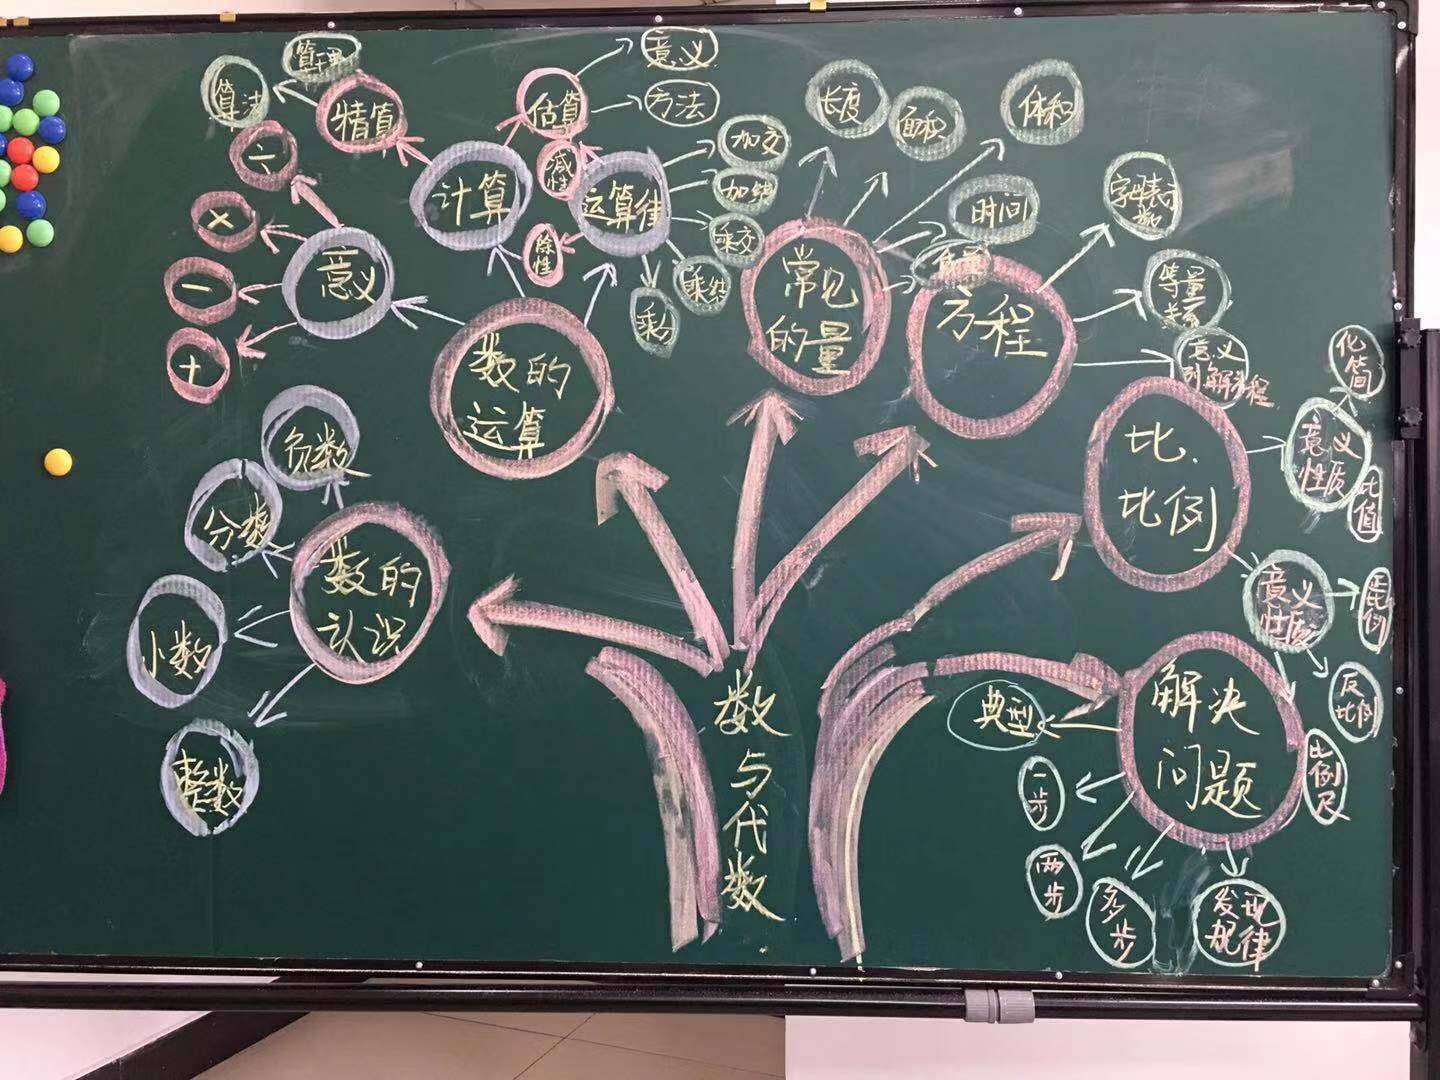 数与代数
数的
认识
负数
分数
小数
整数
数的
运算
意义
÷
×
－
＋
计算
精算
算理
算法
估算
意义
方法
运算律
减
性
除
性
加交
加结
乘交
乘结
乘分
常见
的量
长度
面积
体积
时间
质量
方程
字母表示
数
等量
关系
意义
列解方程
比、
比例
意义
性质
化
简
比
值
意义
性质
正比
例
反
比例
比
例
尺
解决
问题
典型
一
步
两
步
多
步
发现
规律